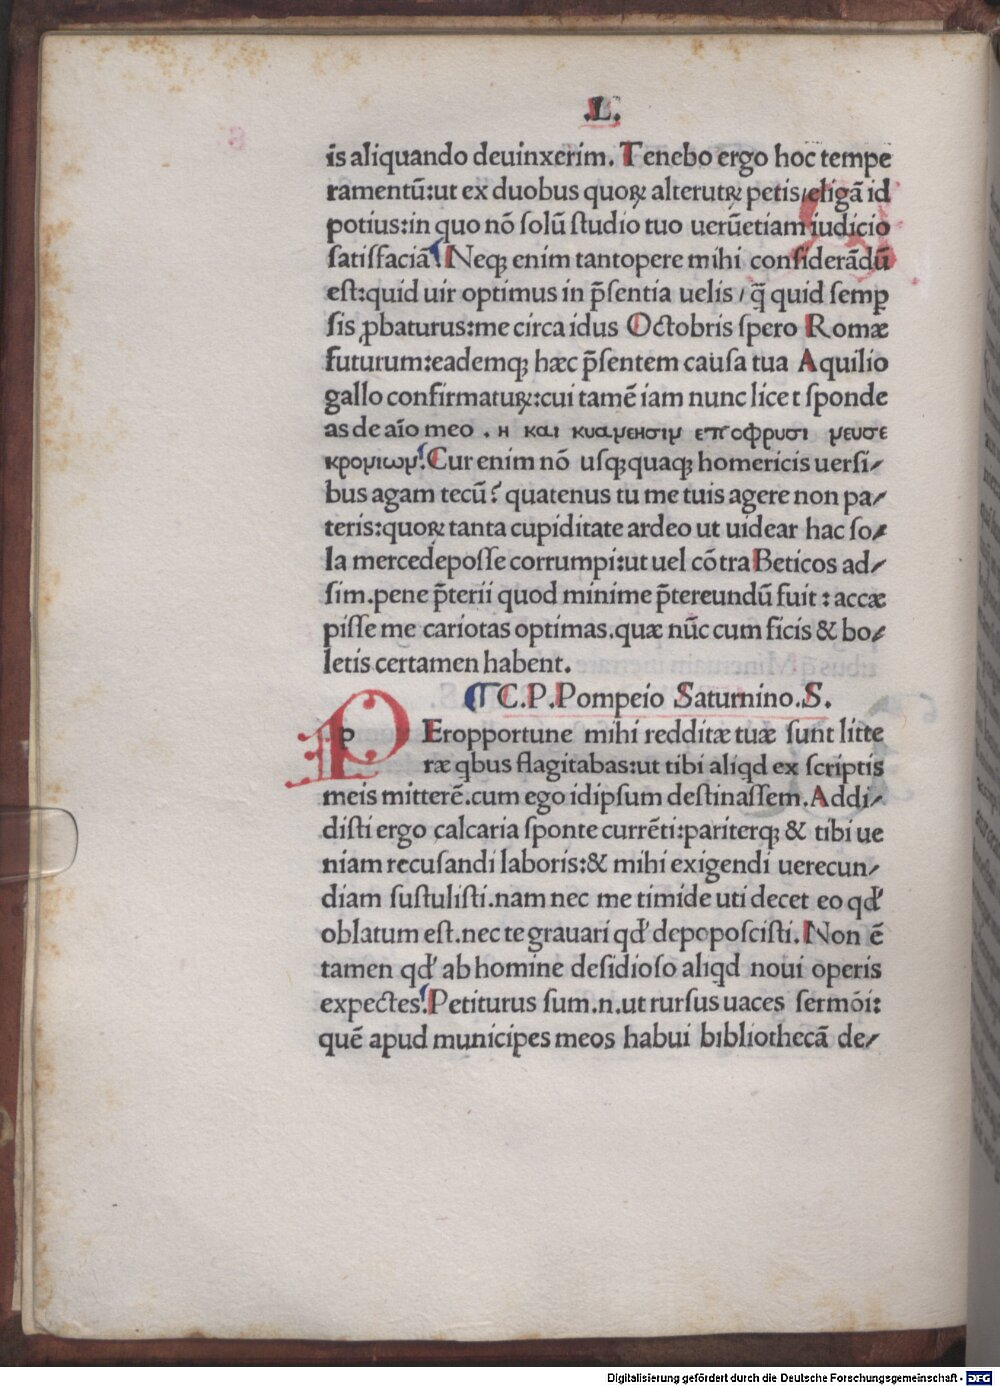 .L.
is aliquando deuinxerim. Tenebo ergo hoc tempe
ramentū:ut ex duobus quoꝝ alterutꝝ petis/eligā id
potius:in quo nō ſolū ſtudio tuo uerūetiam iudicio
ſatiſfaciā. Neqꝫ enim tantopere mihi conſiderādū
eſt:quid uir optimus in p̄ſentia uelis/q̄ quid ſemꝑ
ſis ꝓbaturus:me circa idus Octobris ſpero Romæ
futurum:eademqꝫ hæc p̄ſentem cauſa tua Aquilio
gallo confirmatuꝝ:cui tamē iam nunc lice t ſponde
as de aīo meo . η και κυαμεησιμ επσοφρυσι μευσε
κρομιωμ. Cur enim nō uſqꝫquaqꝫ homericis uerſi/
bus agam tecū? quatenus tu me tuis agere non pa/
teris:quoꝝ tanta cupiditate ardeo ut uidear hac ſo/
la mercedepoſſe corrumpi:ut uel cōtra Beticos ad/
ſim.pene p̄terii quod minime p̄tereundū fuit : accæ
piſſe me cariotas optimas.quæ nūc cum ficis & bo/
letis certamen habent.
¶ C.P.Pompeio Saturnino.S.
P p Eropportune mihi redditæ tuæ ſunt litte
ræ qbus flagitabas:ut tibi aliqd ex ſcriptis
meis mitterē.cum ego idipſum deſtinaſſem.Addi/
diſti ergo calcaria ſponte currēti:pariterqꝫ & tibi ue
niam recuſandi laboris:& mihi exigendi uerecun/
diam ſuſtuliſti.nam nec me timide uti decet eo qd'
oblatum eſt.nec te grauari qd' depopoſciſti. Non ē
tamen qd' ab homine deſidioſo aliqd noui operis
expectes. Petiturus ſum.n.ut rurſus uaces ſermōi:
quē apud municipes meos habui bibliothecā de/
Digitalisierung gefördert durch die Deutsche Forschungsgemeinschaft - DFG